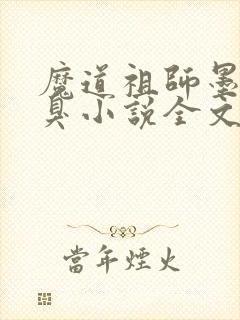 魔道祖師墨
臭小說全文
當年煙火